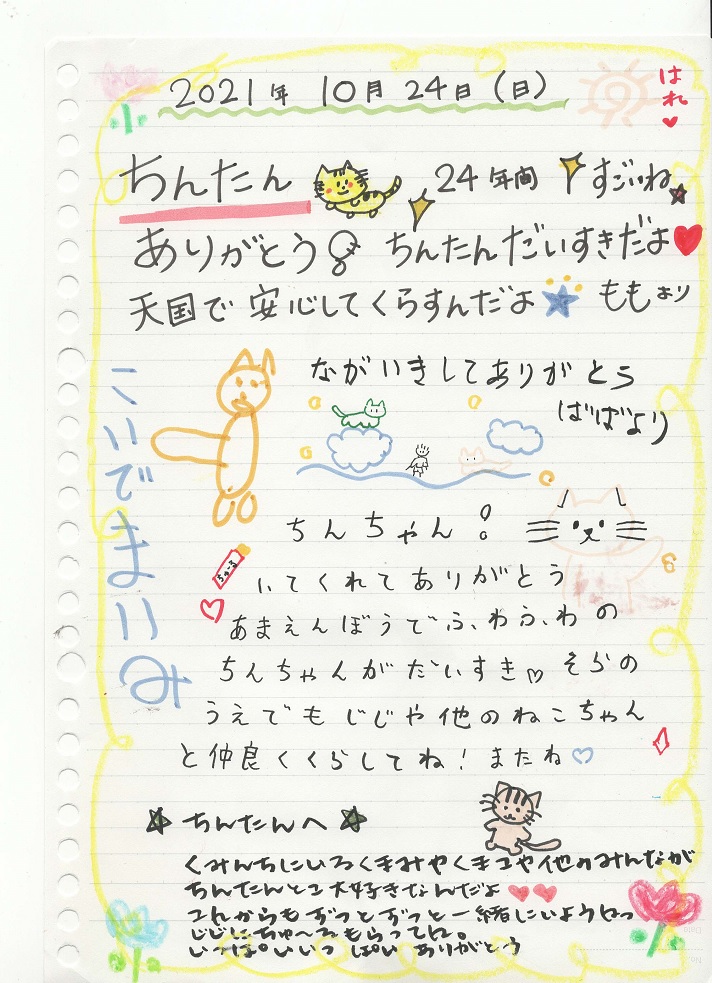 2021年 10月 24日 (日)
はれ
ちんたん 24年間 すごいね
ありがとう ちんたんだいすきだよ
天国で安心してくらすんだよ ももより
ながいきしてありがとう
ばばより
こいでまいみ
ちんちゃん!
ちゅーる
いてくれてありがとう
あまえんぼうでふわふわの
ちんちゃんがだいすき♡そらの
うえでもじじや他のねこちゃん
と仲良くくらしてね! またね♡
☆ちんたんへ☆
くみんちにいるくまみやくまコや他のみんなが
ちんたんとコ大好きなんだよ
これからもずっとずっと一緒にいようねっ
じじにちゅ〜るもらってね。
いっぱいいっぱい ありがとう
Date
No.